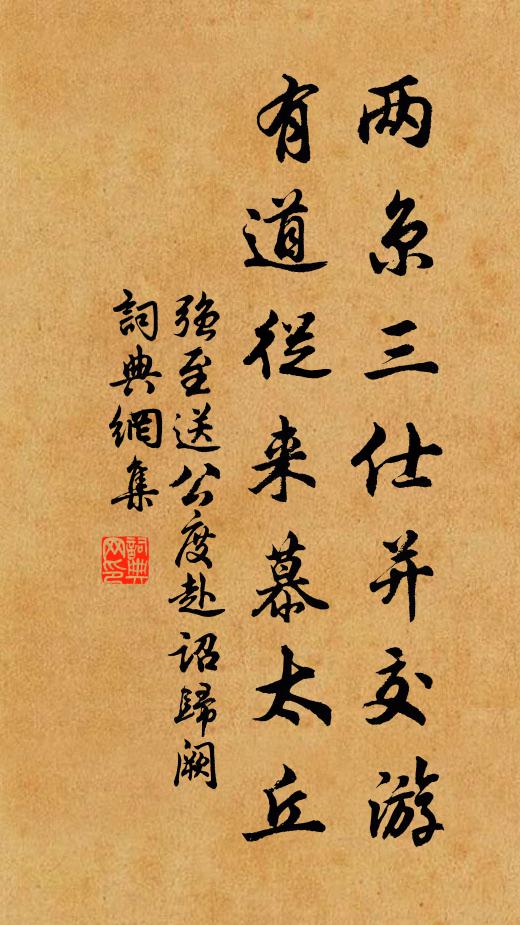 两京三仕并交游
有道從来慕太丘
強至送公度赴詔歸阙
詞典網集
詞典网印